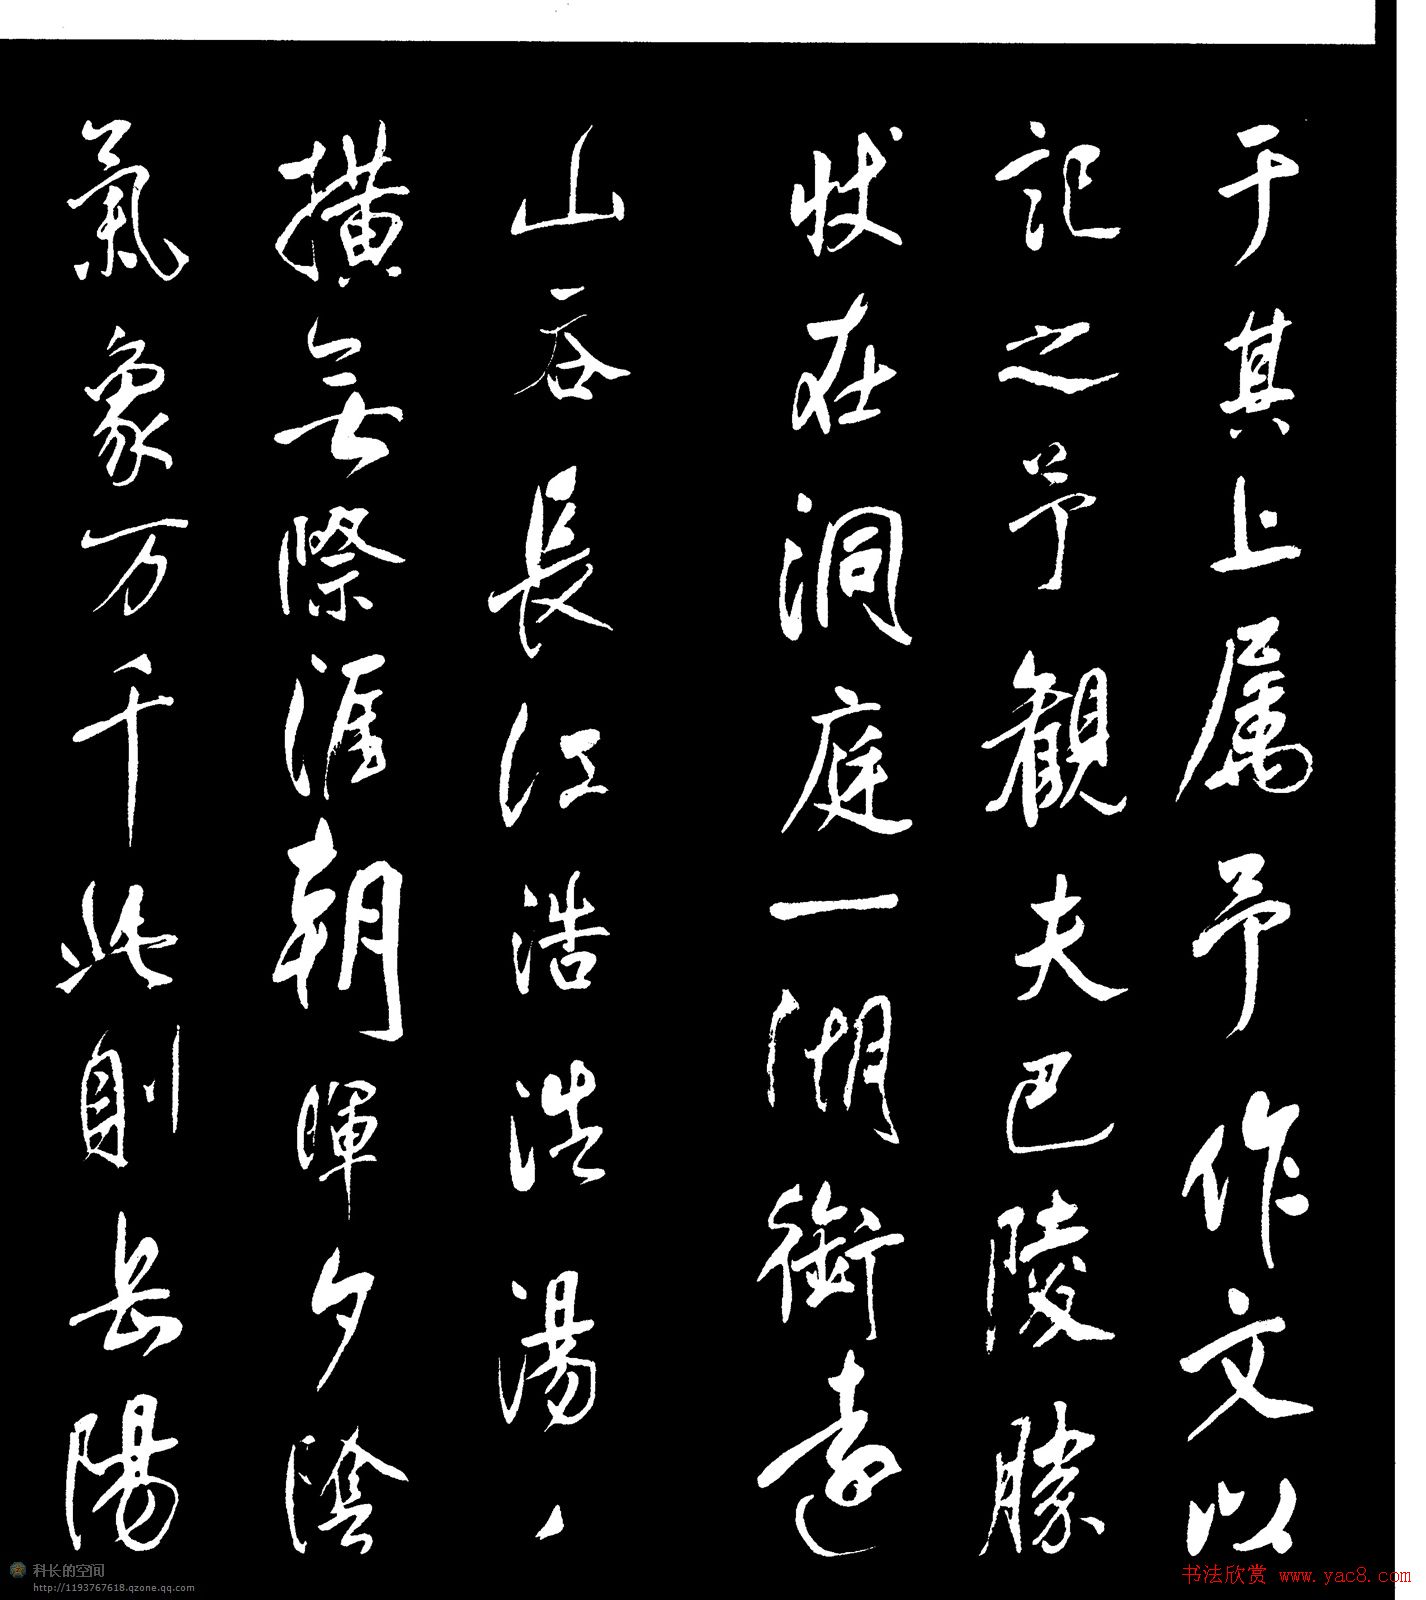 于其上属予作文以
記之予觀夫巴陵勝
状在洞庭一湖銜遠
山吞長江浩浩湯丶
横無際涯朝暉夕陰
氣象万千此則岳陽
科长的空间
http://1193767618.qzone.qq.com
书法欣赏 www.yac8.com